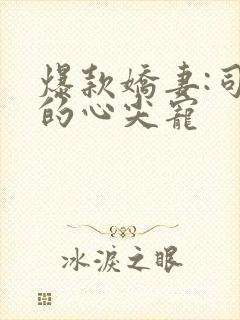 爆款嬌妻:司
的心尖寵
冰淚之眼